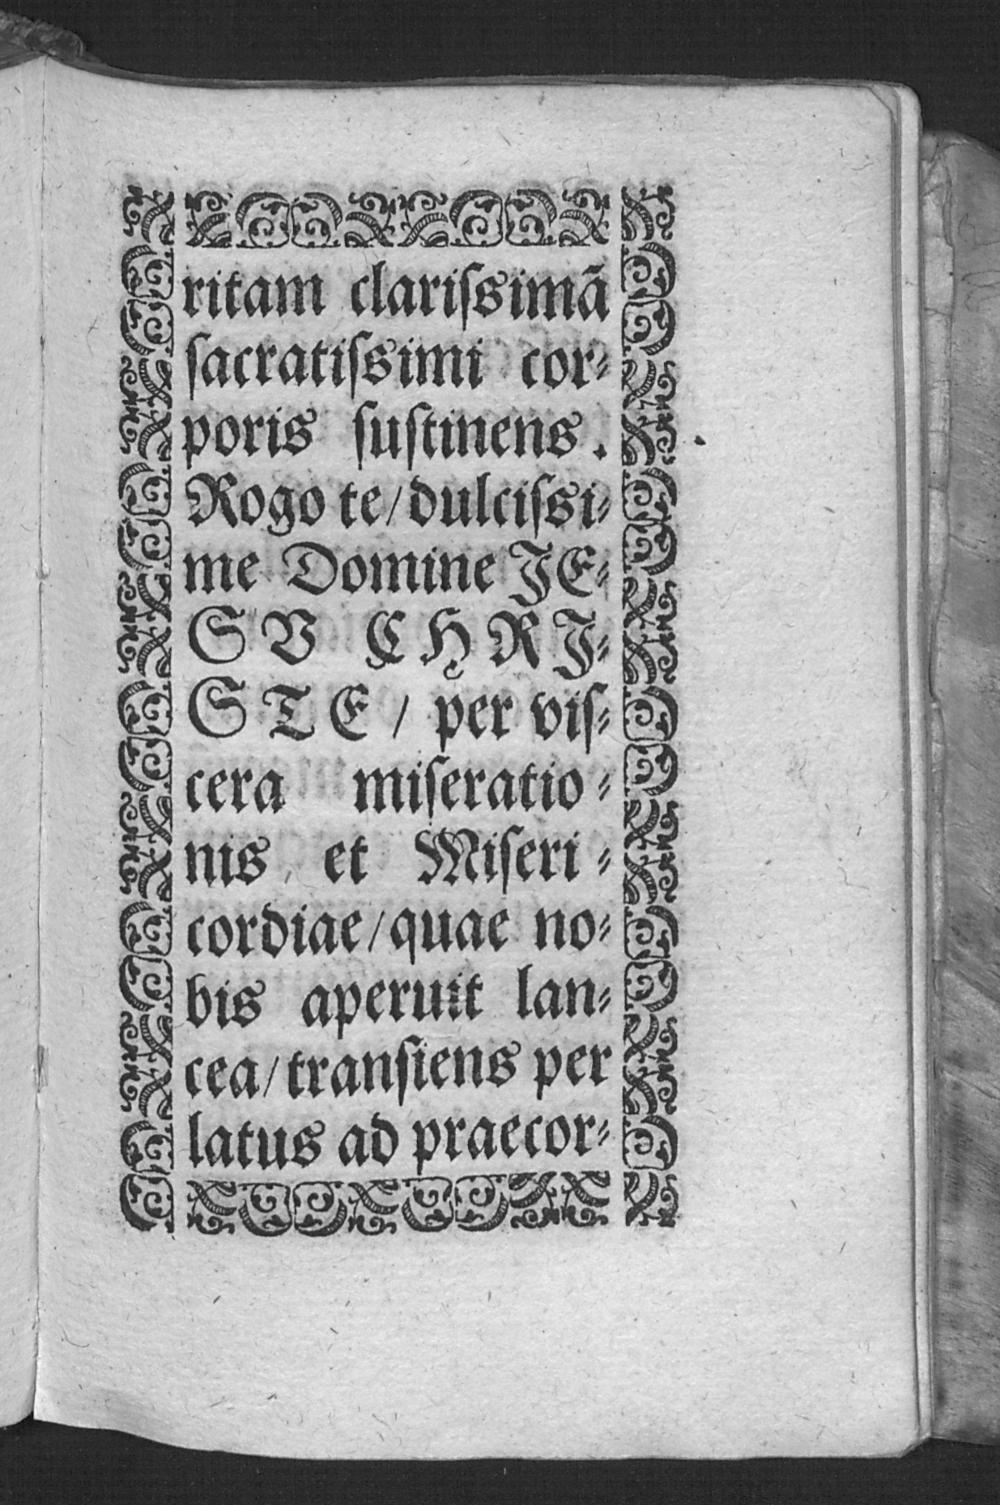 ritam clariſsimã
ſacratiſsimi cor⸗
poris ſuſtinens.
Rogo te/dulciſsi⸗
me Domine JE⸗
SV CHRJ⸗
STE/ per viſ⸗
cera miſeratio⸗
nis et Miſeri⸗
cordiae/quae no⸗
bis aperuit lan⸗
cea/tranſiens per
latus ad praecor⸗